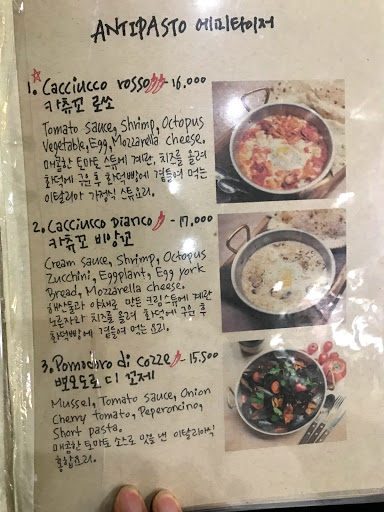 ANTIPASTO 에피타이저
1. Cacciucco rosso - 16.000
카츄꼬 로쏘
Tomato sauce, Shrimp, Octopus
Vegetable, Egg, Mozzarella cheese.
매콤한 토마토 스튜에 계란, 치즈를 올려
화덕에 구운 후 화덕빵에 곁들여 먹는
이탈리아 가정식 스튜요리.
2. Cacciucco bianco - 17.000
카츄꼬 비앙꼬
Cream sauce, Shrimp, Octopus
Zucchini, Eggplant, Egg york
Bread, Mozzarella cheese.
해산물과 야채로 만든 크림스튜에 계란
노른자와 치즈를 올려 화덕에 구운 후
화덕빵에 곁들여 먹는 요리.
3. Pomodoro di cozze - 15.500
뽀모도로 디 꼬제
Mussel, Tomato sauce, Onion
Cherry tomato, Peperoncino,
Short pasta.
매콤한 토마토 소스로 맛을 낸 이탈리아식
홍합요리.